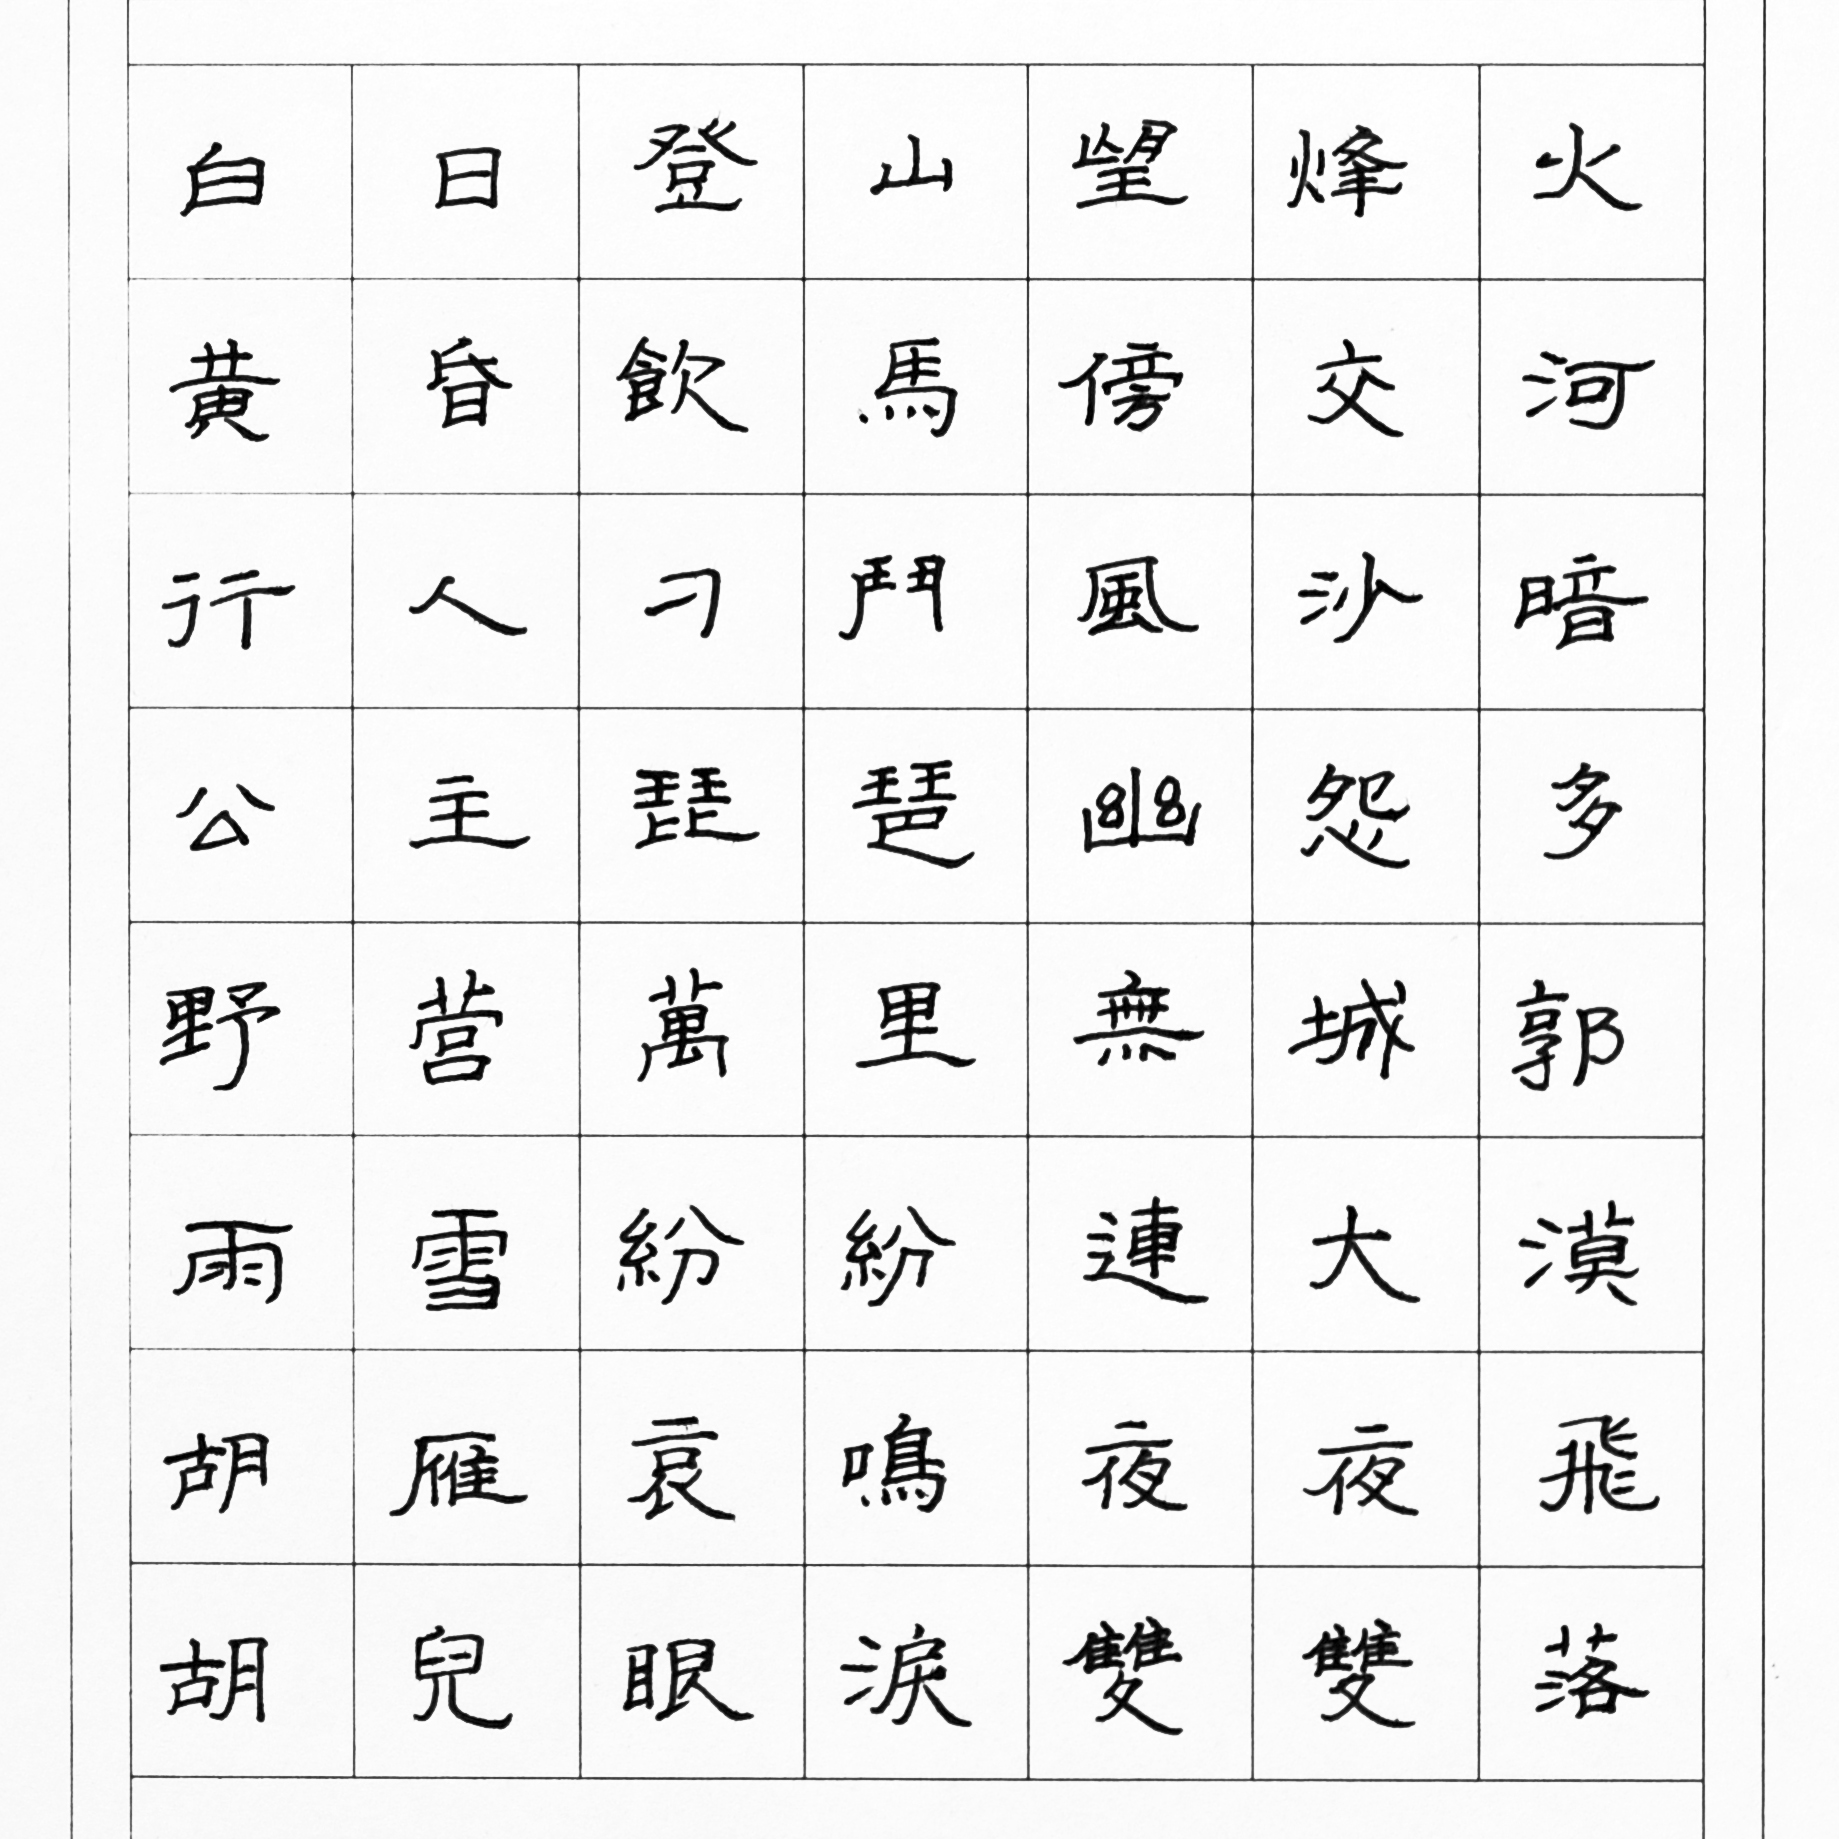 白日登山望烽火
黃昏飲馬傍交河
行人刁鬥風沙暗
公主琵琶幽怨多
野营萬里無城郭
雨雪紛紛連大漠
胡雁哀鳴夜夜飛
胡兒眼淚雙雙落